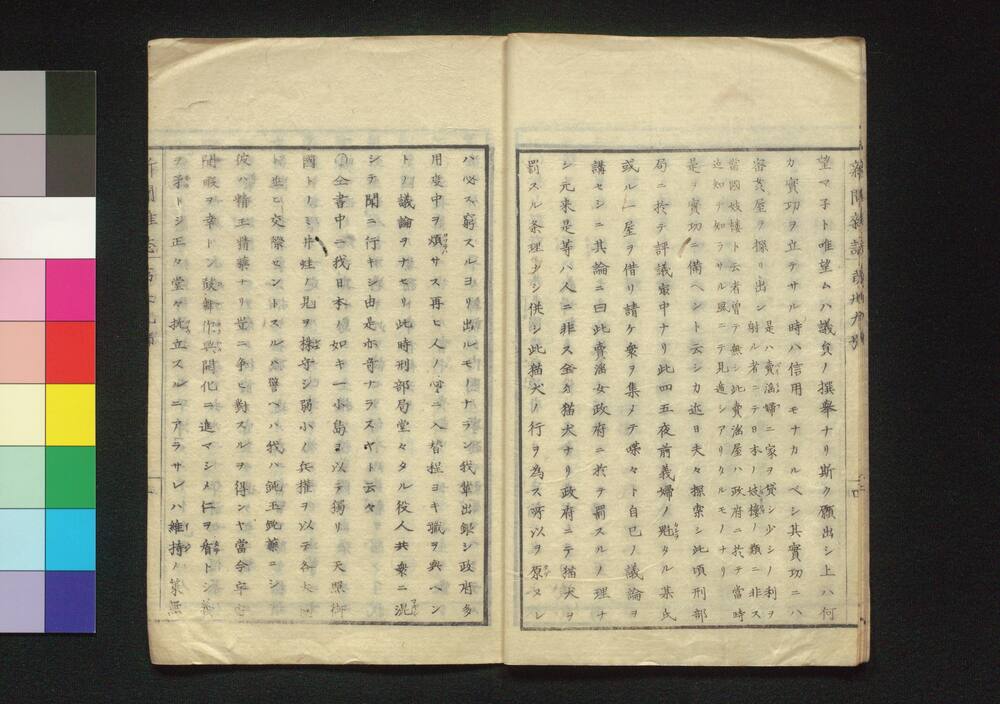 望マ子ト唯望ムハ議負ノ撰挙ナリ斯ク願出シ上ハ何
カ實功ヲ立テサル時ハ信用モナカルベシ其實功ニハ
密賣屋ヲ探リ出シ
是ハ賣淫婦ニ家ヲ貸シ少シノ利ヲ
射ル者ニテ日本ノ妓樓ノ類ニ非ス
當國妓樓ト云者曽テ無シ此賣淫屋ハ政府ニ於テ當時
迄知テ知ラサル風ニテ見迯シアリタルモノナリ
是ヲ實功ニ備ヘント云シカ近日夫々探索シ此頃刑部
局ニ於テ評議最中ナリ此四五夜前義婦ノ魁タル某氏
或ル一屋ヲ借リ請ケ衆ヲ集メテ喋々ト自己ノ議論ヲ
講セシニ其論ニ曰此賣淫女政府ニ於テ罰スルノ理ナ
シ元来是等ハ人ニ非ス全ク猫犬ナリ政府ニテ猫犬ヲ
罰スル条理ナシ併シ此猫犬ノ行ヲ為ス所以ヲ原ヌレ
ハ必ス窮スルヨリ出ルモノナラン我輩出銀シ政府多
用度中ヲ煩サス再ヒ人ノ中ニ入替程ヨキ職ヲ與ヘン
トノ議論ヲナセリ此時刑部局堂々タル役人共衆ニ混
シテ聞ニ行キシ由是亦奇ナラスヤト云々
〇仝書中ニ我日本ノ如キ一小島ヲ以テ獨リ天照御
國トノミ井蛙ノ見ヲ操守シ弱小ノ兵權ヲ以テ各大
ト並ヒ交際セントスルハ譬ヘハ我ハ鈍玉鈍藥ニシ
彼ハ精玉精藥ナリ豈ニ争ヒ對スルヲ得ンヤ當今
閑暇ヲ幸トシ鼓舞作興開化ニ進マシメ仁ヲ盾トシ
ヲ矛トシ正々堂々抗立スルニアラサレハ維持ノ策無